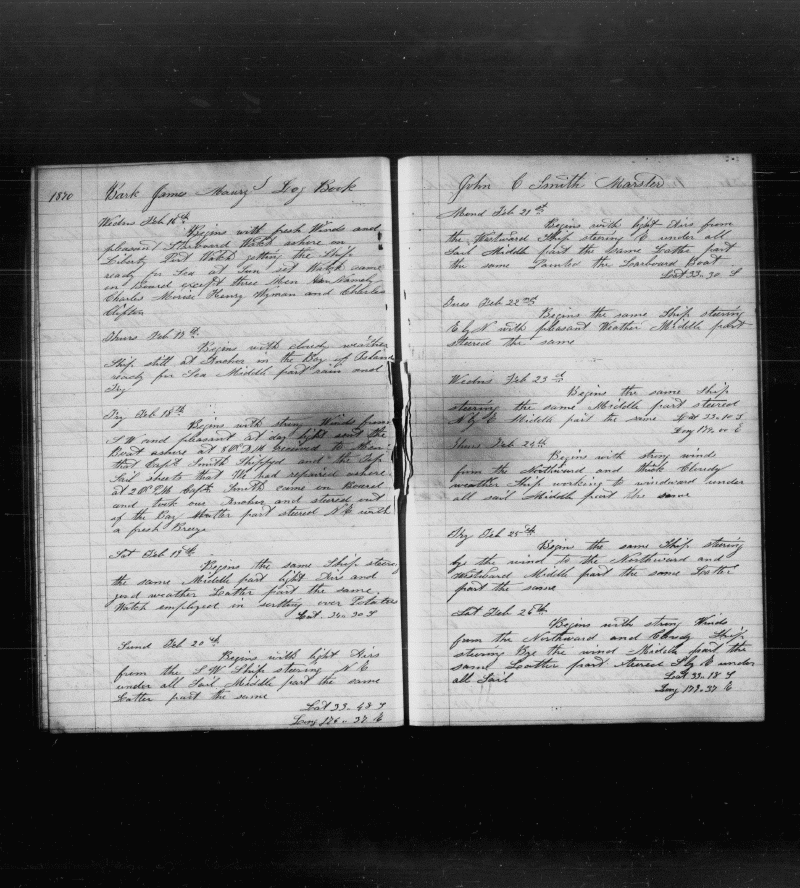 1870
Bark James Maury's Log Book
Wedns Feb 16th
Begins with fresh Winds and
pleasant Starboard Watch ashore on
Liberty Port Watch getting the Ship
ready for Sea at Sun set Watch came
on Board except three Men Namely
Charles Morris Henry Wyman and Charles
Clifton
Thurs Feb 17th
Begins with cloudy weather
Ship still at Anchor in the Bay of Island
ready for Sea Middle part rain and
Fog
Fry Feb 18th
Begins with strong Winds from
S W and pleasant at day light sent the
Boat ashore at P M to the
that Capt Smith Shipped and the Top
Sail sheets that We had repaired ashore
at 2 P M Capt Smith came on Board
and took our Anchor and steered out
of the Bay Latter part steered N E with
a fresh Breeze
Sat Feb 19th
Begins the same Ship steering
the same Middle part light Airs and
good weather Latter part the same
Watch employed in sorting over Potatoes
Lat 34.30 S
Sund Feb 20th
Begins with light Airs
from the S W Ship steering N E
under all Sail Middle part the same
Latter part the same
Lat 33.48 S
Long 176.37 E
John C Smith Marster
Mond Feb 21st
Begins with light Airs from
the Westward Ship steering E under all
Sail Middle part the same Latter part
the same the Larboard Boat
Lat 33.30 S
Tues Feb 22nd
Begins the same Ship steering
E by N with pleasant Weather Middle part
steered the same
Wedns Feb 23d
Begins the same Ship
steering the same Middle part steered
by E Middle part the same Lat 33.10 S
Long 179.00 E
Thurs Feb 24th
Begins with strong wind
from the Northward and thick Cloudy
weather Ship working to windward under
all sail Middle part the same
Fry Feb 25th
Begins the same Ship steering
by the wind to the Northward and
Westward Middle part the same Latter
part the same
Sat Feb 26th
Begins with strong Winds
from the Northward and Cloudy Ship
steering Bye the wind Middle part the
same Latter part steered S by E under
all Sail
Lat 33.18 S
Long 179.37 E